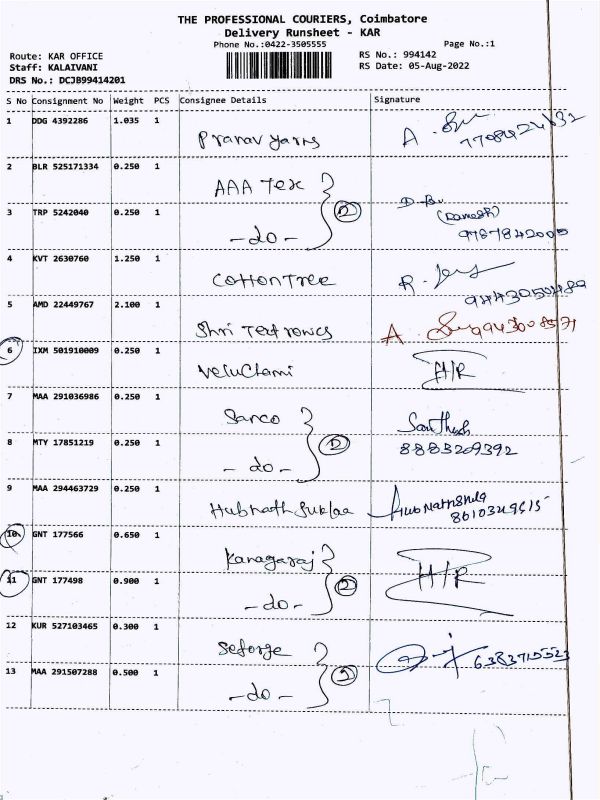 THE PROFESSIONAL COURIERS, Coimbatore
Delivery Runsheet - KAR
Phone No.:0422-3505555 Page No.:1
Route: KAR OFFICE RS No.: 994142
Staff: KALAIVANI RS Date: 05-Aug-2022
DRS No.: DCJB99414201
S No Consignment No Weight PCS Consignee Details Signature
1 DDG 4392286 1.035 1 Pranav yarns A.
2 BLR 525171334 0.250 1 AAA Tex
3 TRP 5242040 0.250 1 -do- 2 (Damesh)
4 KVT 2630760 1.250 1 Cottontree R.
5 AMD 22449767 2.100 1 Shri Textronics A.
6 IXM 501910009 0.250 1 Veluchami H/R
7 MAA 291036986 0.250 1 Sanco Santhosh
8 MTY 17851219 0.250 1 -do- 2 8883209392
9 MAA 294463729 0.250 1 Hubnath Suklaa
10 GNT 177566 0.650 1 Kanagaraj H/R
11 GNT 177498 0.900 1 -do- 2
12 KUR 527103465 0.300 1 Seforge 6383715523
13 MAA 291507288 0.500 1 -do- 2